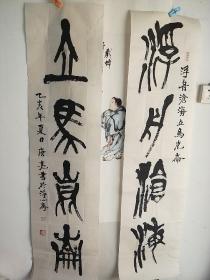 浮舟滄海
浮舟滄海立馬崑崙
立馬崑崙
乙亥年夏日